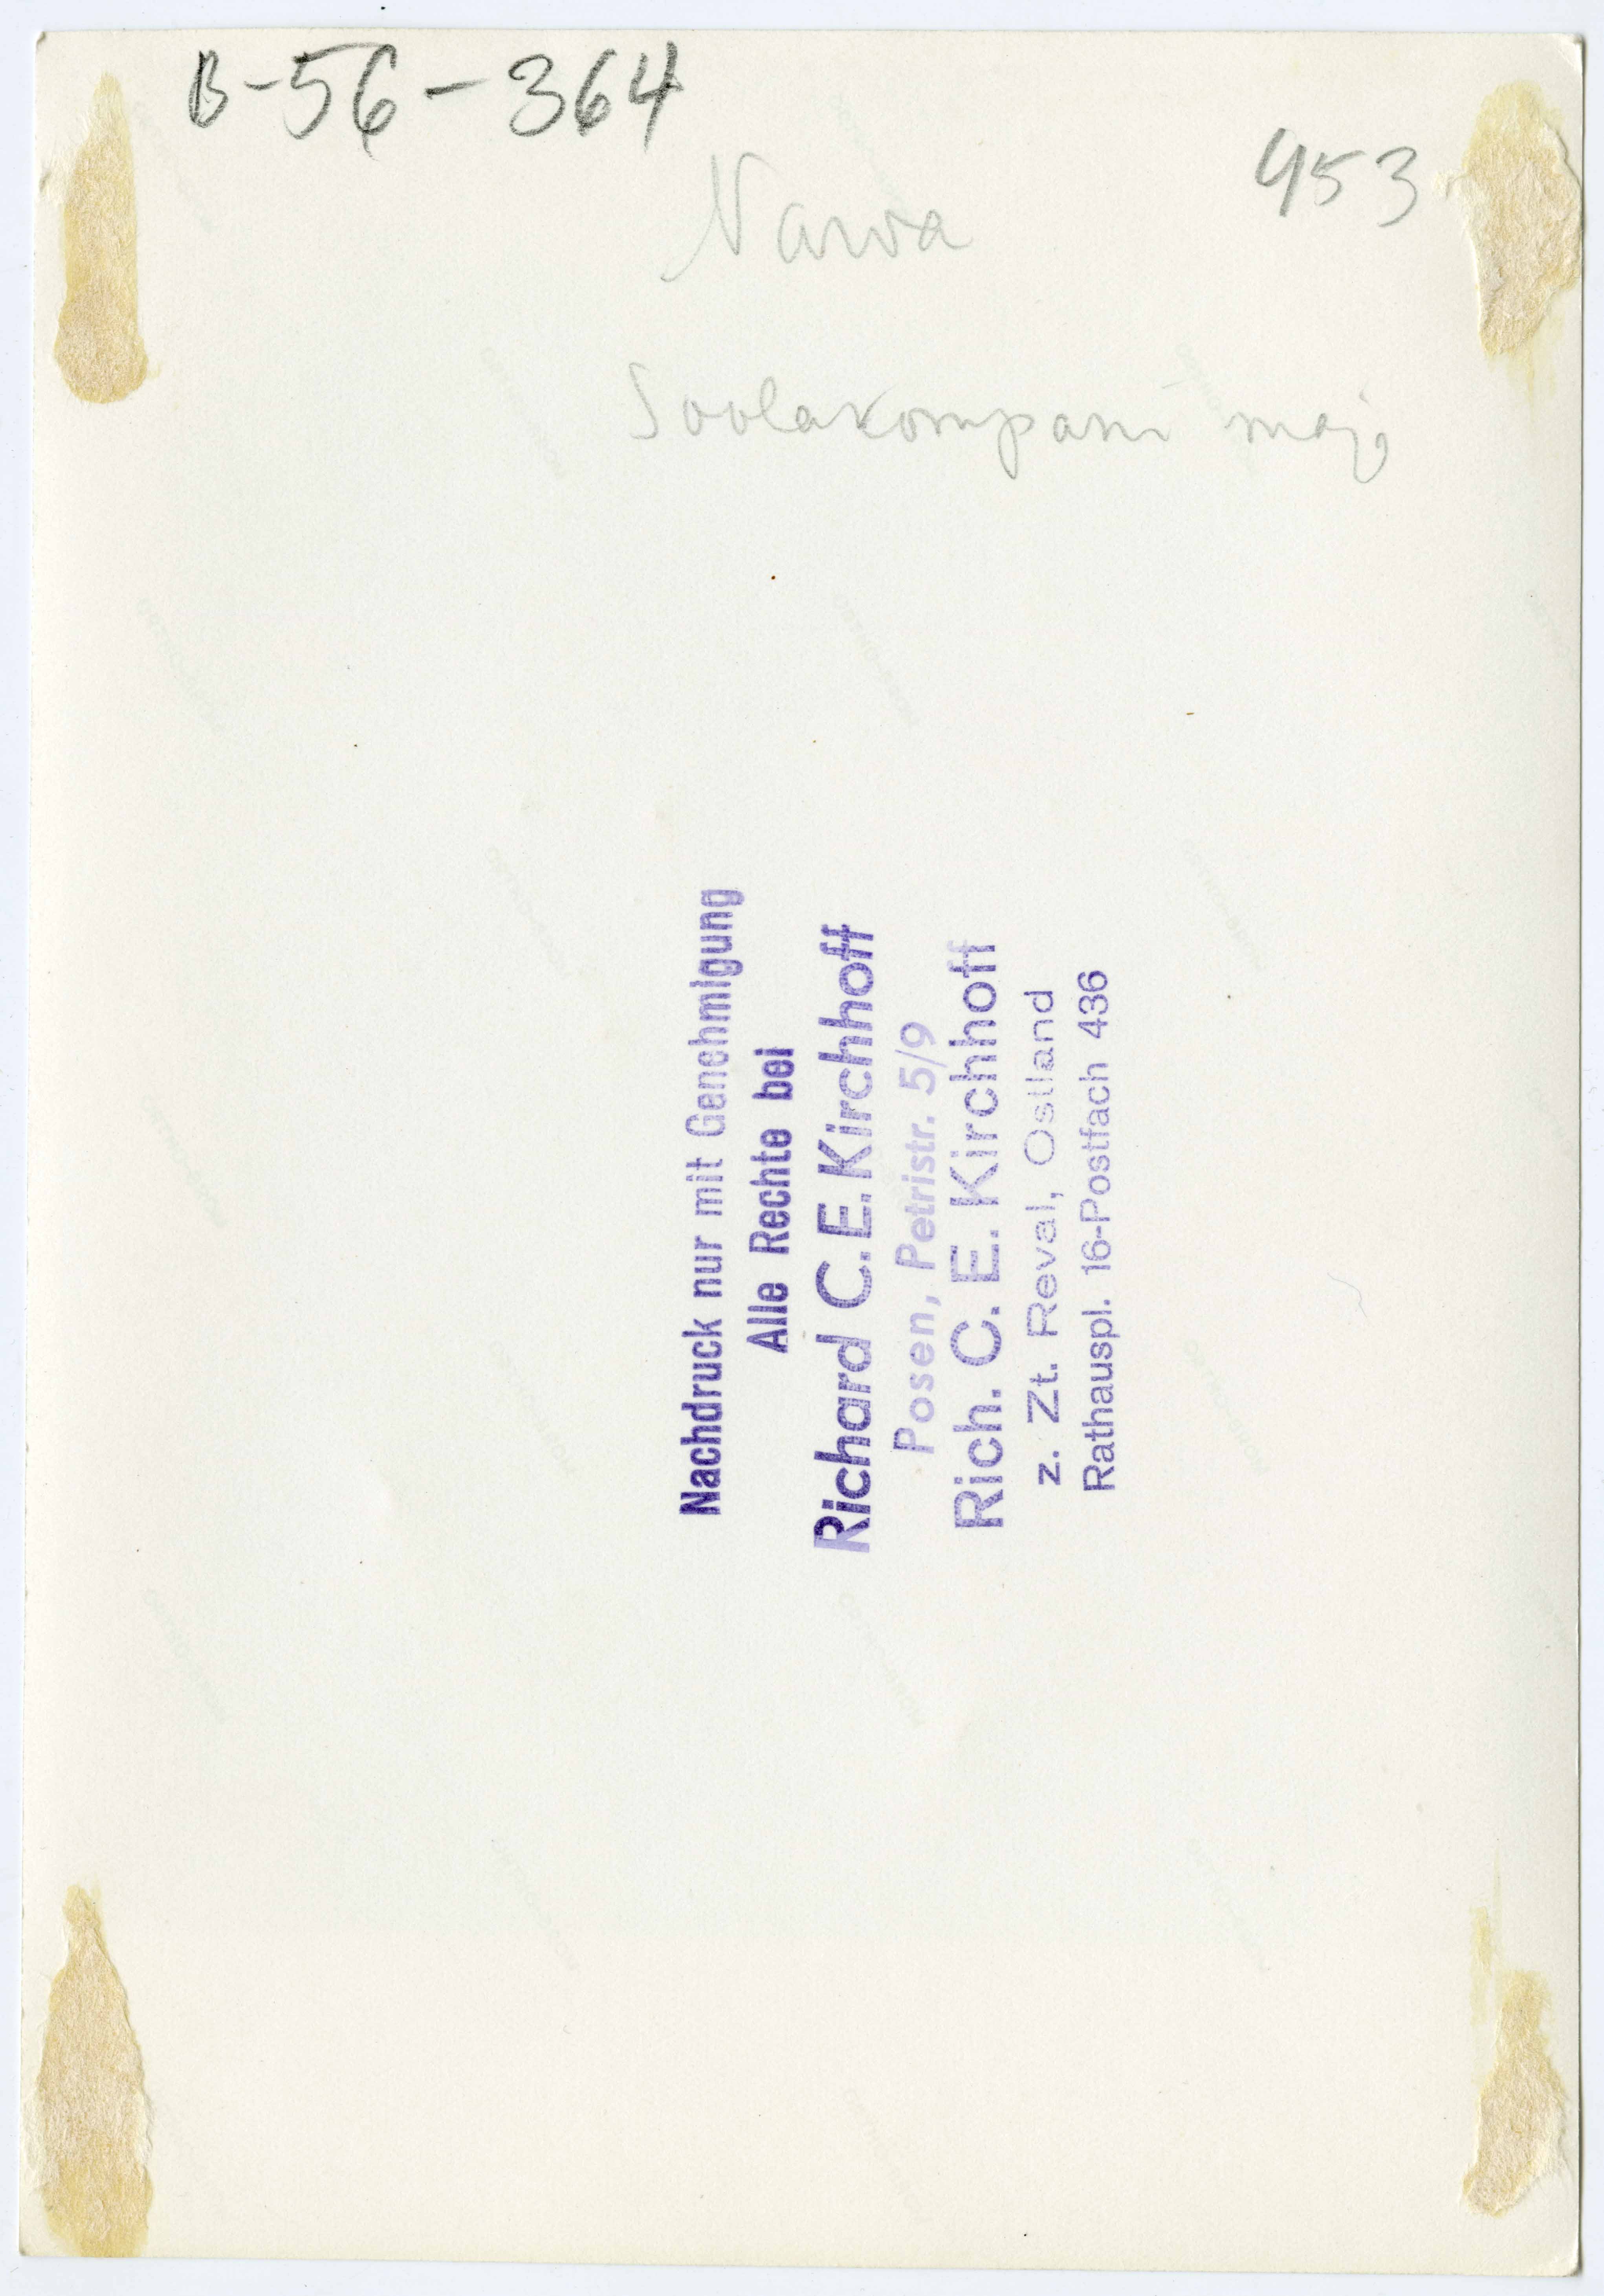 B-56-364
953
Narva
Soolakompani maja
Nachdruck nur mit Genehmigung
Alle Rechte bei
Richard C.E. Kirchhoff
Posen, Petristr. 5/9
Rich. C. E. Kirchhoff
z. Zt. Reval, Ostland
Rathauspl. 16-Postfach 436